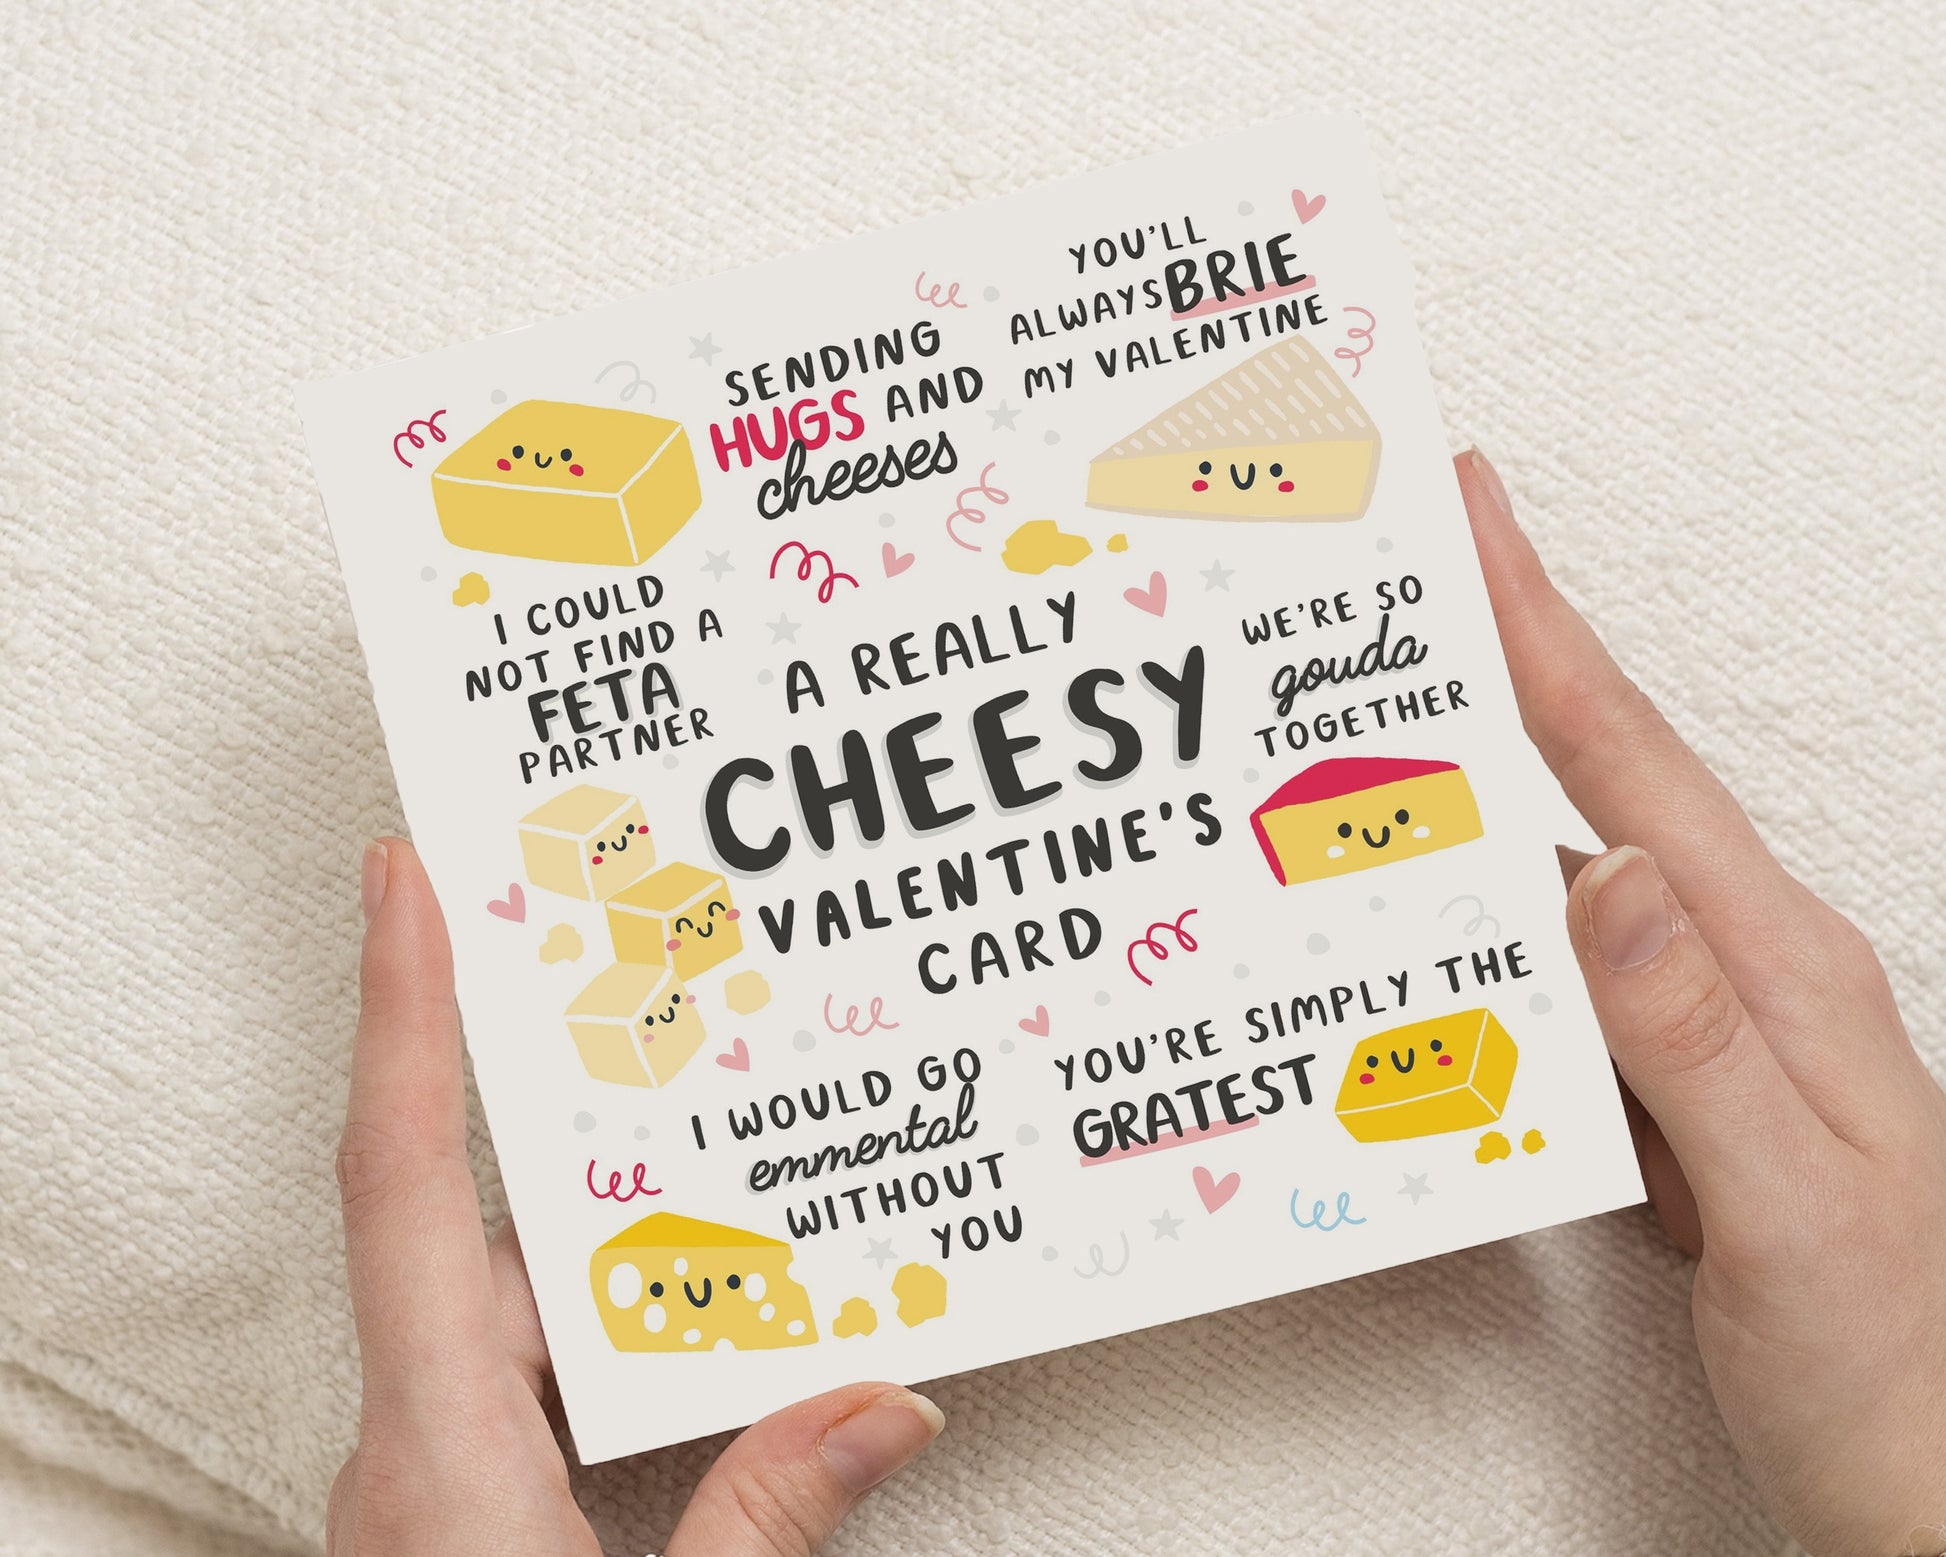 SENDING
HUGS AND
cheeses
YOU'LL
ALWAYS BRIE
MY VALENTINE
I COULD
NOT FIND A
FETA
PARTNER
A REALLY
CHEESY
VALENTINE'S
CARD
WE'RE SO
gouda
TOGETHER
I WOULD GO
emmental
WITHOUT
YOU
YOU'RE SIMPLY THE
GRATEST